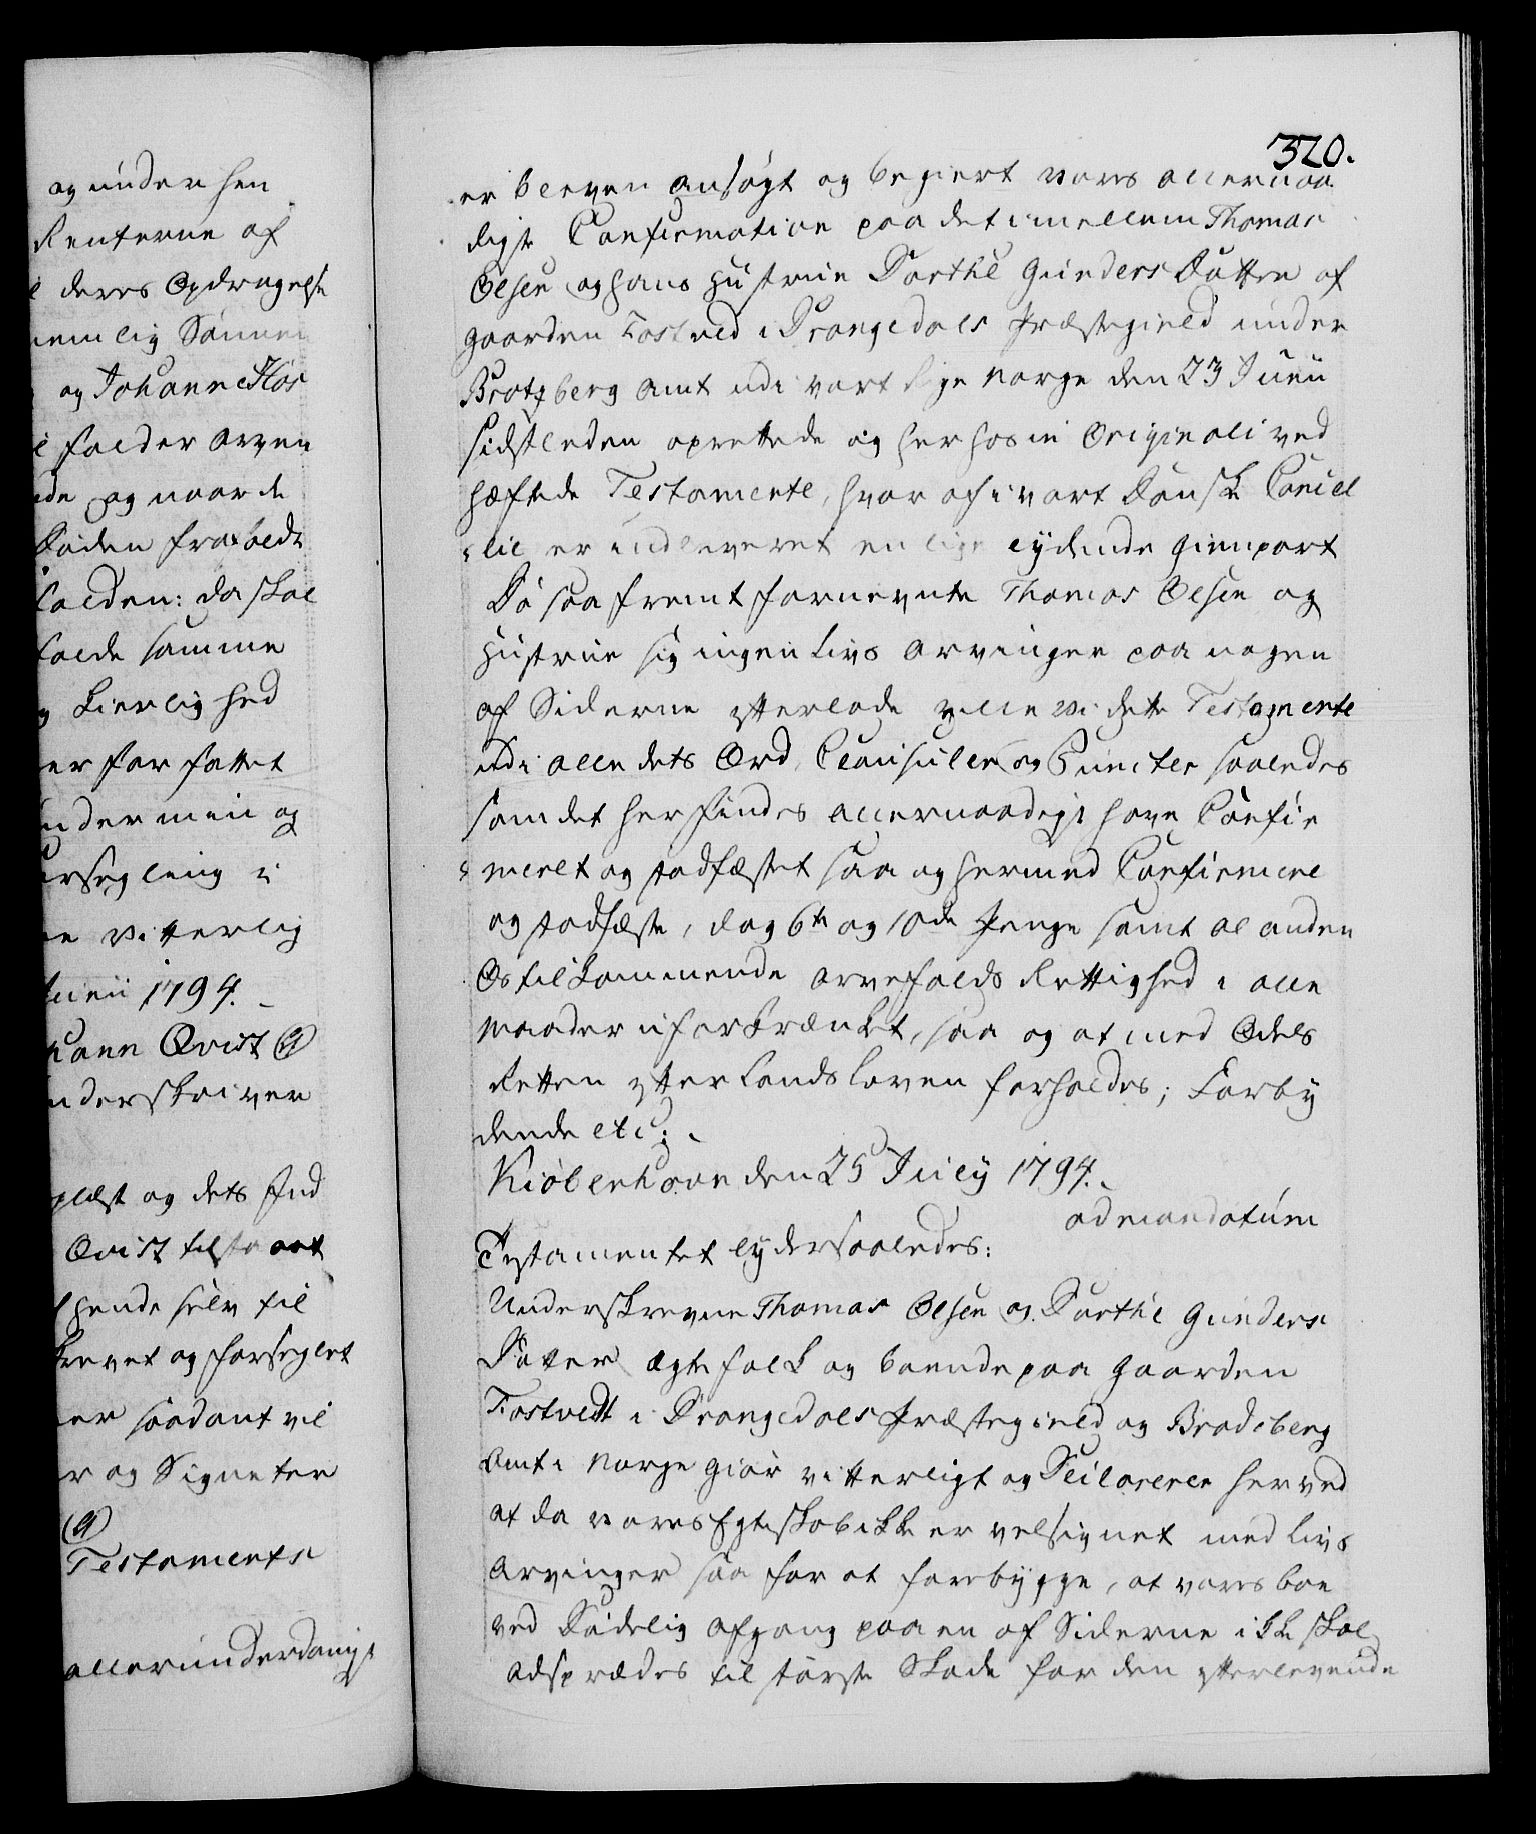 og under hen
Renterne af
deres Opdragelse
nemlig Sønnen
og Johanne Høs
falder Arven
og naar de
Døden frakaldt
falden: da skal
falde samme
Kierlighed
er forfattet
under min og
forsegling i
vitterlig
Junii 1794.
mann Qvist
underskriver
oplæst og dets Ind
Qvist tilstaaet
hende selv til
skrevet og forseglet
er saadant vil
og Signeter
Testaments
allerunderdanigst
320.
er bleven ansøgt og begiert vores allernaa
digste Confirmation paa det imellem Thomas
Olsen og hans Hustrue Dorthe Gunders Datter af
gaarden Tostved i Drangedals Præstegield under
Bratzberg Amt udi vort Rige Norge den 23 Junii
sidstleden oprettede og herhos in Originali ved
hæftede Testamente, hvoraf i vort Danske Cancel
lie er indleveret en lige lydende Gienpart
Da saafremt fornevnte Thomas Olsen og
Hustrue sig ingen Livs Arvinger paa nogen
af Siderne efterlade ville vi dette Testamente
udi alle dets Ord, Clausuler og Puncter saaledes
som det her findes allernaadigst have Confir
meret og stadfæstet saa og hermed Confirmere
og stadfæste, dog 6te og 10de Penge samt al anden
Os tilkommende Arvefalds Rettighed i alle
Maader uforkrænket, saa og at med Odels
Retten efter Landsloven forholdes; Forby
dende etc:
Kiøbenhavn den 25 July 1794.
ad mandatum
Testamentet lyder saaledes:
Underskrevne Thomas Olsen og Dorthe Gunders
Datter Ægtefolk og boende paa Gaarden
Tostvedt i Drangedals Præstegield og Bradsberg
Amt i Norge giør vitterligt og Declarerer herved
at da vores Egteskab ikke er velsignet med Livs
Arvinger saa for at forebygge, at vores boe
ved Dødelig Afgang paa en af Siderne ikke skal
adsprædes til største Skade for den efterlevende